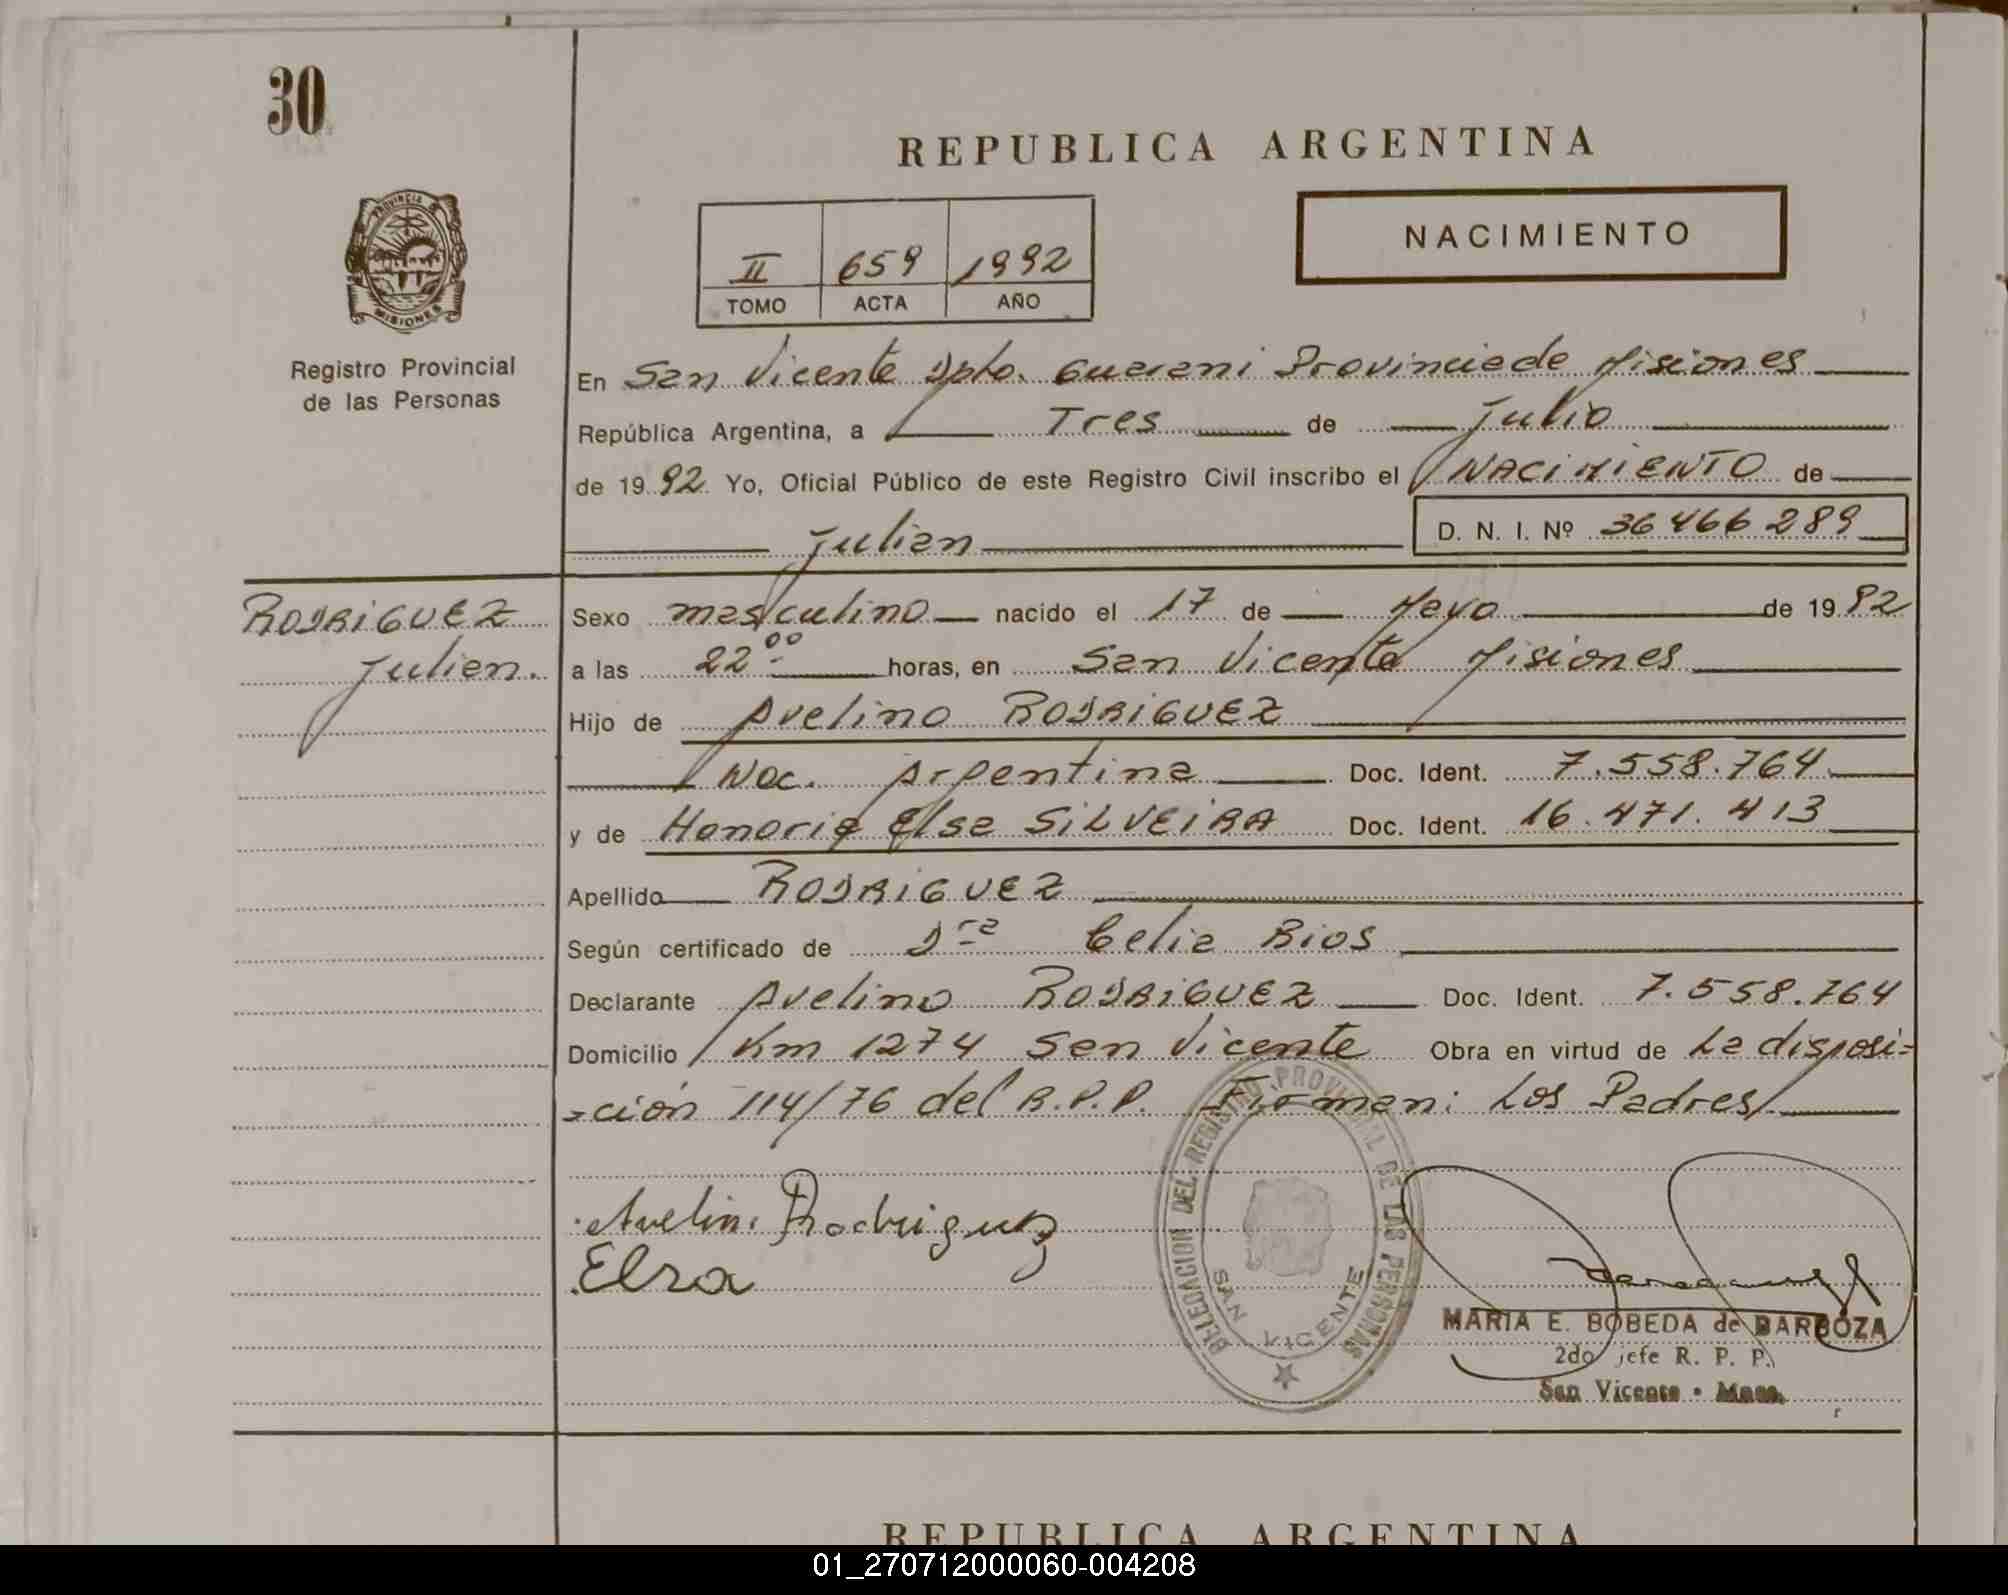 30
REPUBLICA ARGENTINA
PROVINCIA DE MISIONES
NACIMIENTO
II 659 1992
TOMO ACTA AÑO
Registro Provincial
de las Personas
En San Vicente Dpto. Guarani Provincia de Misiones
República Argentina, a Tres de Julio
de 1992 Yo, Oficial Público de este Registro Civil inscribo el NACIMIENTO de
Julian D. N. I. Nº 36466289
RODRIGUEZ
Julian.
Sexo masculino nacido el 17 de Mayo de 1992
a las 22 00 horas, en San Vicente Misiones
Hijo de Avelino RODRIGUEZ
Nac. Argentina Doc. Ident. 7.558.764
y de Honoria Elsa SILVEIRA Doc. Ident. 16.471.413
Apellido RODRIGUEZ
Según certificado de Dra Celia Rios
Declarante Avelino RODRIGUEZ Doc. Ident. 7.558.764
Domicilio Km 1274 San Vicente Obra en virtud de La disposi=
=ción 114/76 del R.P.P. Firman: Los Padres
Avelino Rodriguez
Elza
DELEGACION DEL REGISTRO PROVINCIAL DE LAS PERSONAS
SAN VICENTE
MARIA E. BOBEDA de BARBOZA
2do jefe R. P. P.
San Vicente - Mnes.
REPUBLICA ARGENTINA
01_270712000060-004208